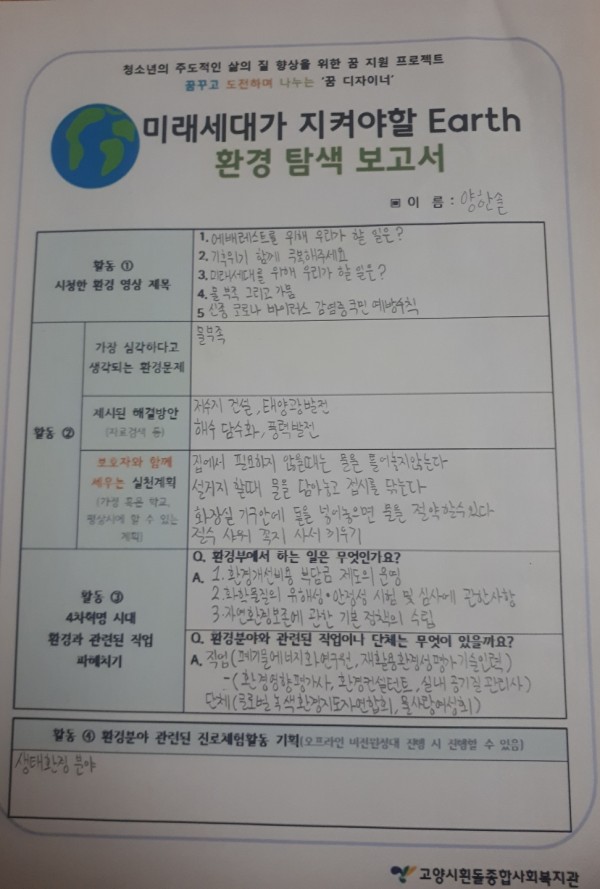 청소년의 주도적인 삶의 질 향상을 위한 꿈 지원 프로젝트
꿈꾸고 도전하며 나누는 '꿈 디자이너'
미래세대가 지켜야할 Earth
환경 탐색 보고서
▣ 이 름 : 양한솔
활동 ①
시청한 환경 영상 제목
1. 에베레스트를 위해 우리가 할 일은?
2. 기후위기 함께 극복해주세요
3. 미래세대를 위해 우리가 할 일은?
4. 물 부족 그리고 가뭄
5 신종 코로나 바이러스 감염증 국민 예방수칙
활동 ②
가장 심각하다고
생각되는 환경문제
물부족
제시된 해결방안
(자료검색 등)
저수지 건설, 태양광발전
해수 담수화, 풍력발전
보호자와 함께
세우는 실천계획
(가정 혹은 학교,
평상시에 할 수 있는
계획)
집에서 필요하지 않을때는 물을 틀어놓지않는다
설거지 할때 물을 담아놓고 접시를 닦는다
화장실 변기안에 돌을 넣어놓으면 물을 절약할수있다
절수 샤워 꼭지 사서 끼우기
활동 ③
4차혁명 시대
환경과 관련된 직업
파헤치기
Q. 환경부에서 하는 일은 무엇인가요?
A. 1. 환경개선비용 부담금 제도의 운영
2. 화학물질의 유해성·안정성 시험 및 심사에 관한사항
3. 자연환경보존에 관한 기본 정책의 수립
Q. 환경분야와 관련된 직업이나 단체는 무엇이 있을까요?
A. 직업(폐기물에너지화연구선, 재활용환경성평가기술인력)
-(환경영향평가사, 환경컨설턴트, 실내 공기질 관리사)
단체(글로벌 녹색환경지도자연합회, 물사랑여성회)
활동 ④ 환경분야 관련된 진로체험활동 기획(오프라인 비전원정대 진행 시 진행할 수 있음)
생태환경 분야
고양시흰돌종합사회복지관